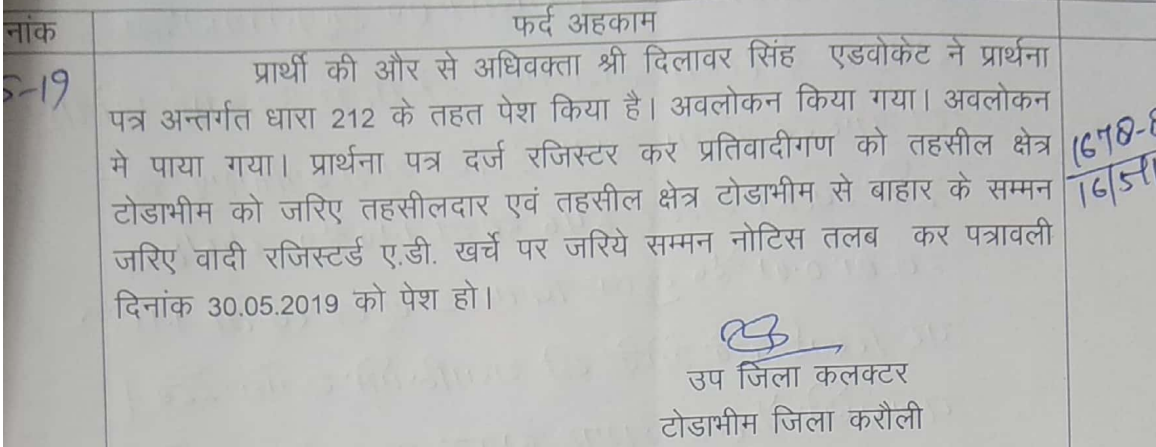 नांक
फर्द अहकाम
5-19
प्रार्थी की और से अधिवक्ता श्री दिलावर सिंह एडवोकेट ने प्रार्थना
पत्र अन्तर्गत धारा 212 के तहत पेश किया है। अवलोकन किया गया। अवलोकन
मे पाया गया। प्रार्थना पत्र दर्ज रजिस्टर कर प्रतिवादीगण को तहसील क्षेत्र
टोडाभीम को जरिए तहसीलदार एवं तहसील क्षेत्र टोडाभीम से बाहार के सम्मन
जरिए वादी रजिस्टर्ड ए.डी. खर्चे पर जरिये सम्मन नोटिस तलब कर पत्रावली
दिनांक 30.05.2019 को पेश हो।
उप जिला कलक्टर
टोडाभीम जिला करौली